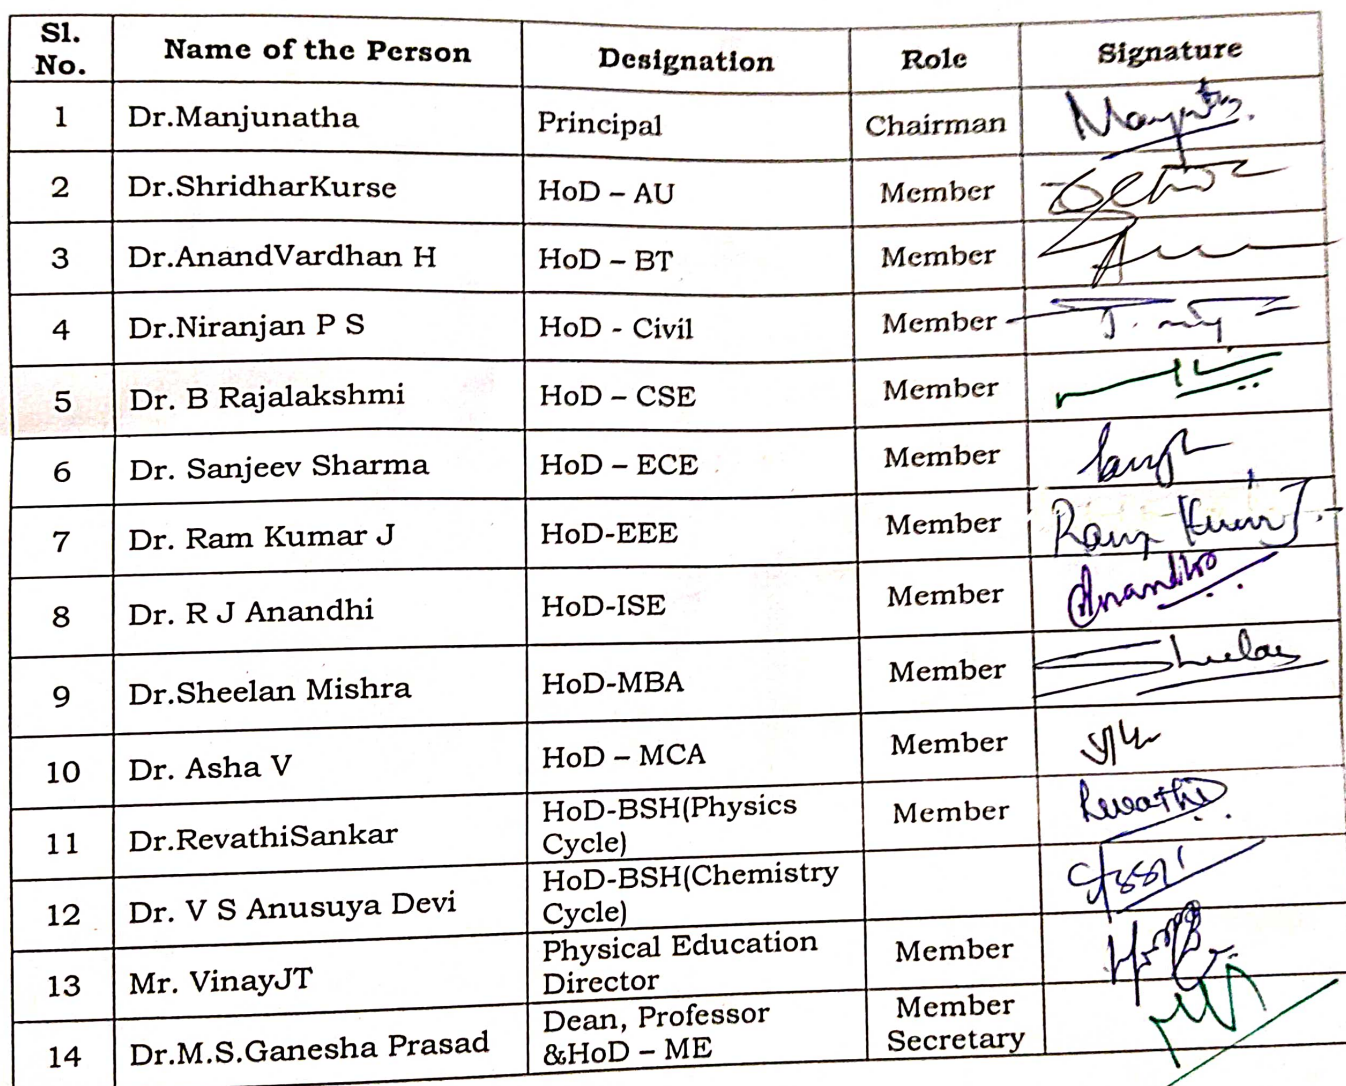 Sl. No. Name of the Person Designation Role Signature
1 Dr.Manjunatha Principal Chairman
2 Dr.ShridharKurse HoD – AU Member
3 Dr.AnandVardhan H HoD – BT Member
4 Dr.Niranjan P S HoD - Civil Member
5 Dr. B Rajalakshmi HoD – CSE Member
6 Dr. Sanjeev Sharma HoD – ECE Member
7 Dr. Ram Kumar J HoD-EEE Member Ram Kumar J.
8 Dr. R J Anandhi HoD-ISE Member
9 Dr.Sheelan Mishra HoD-MBA Member
10 Dr. Asha V HoD – MCA Member
11 Dr.RevathiSankar HoD-BSH(Physics Cycle) Member Revathi
12 Dr. V S Anusuya Devi HoD-BSH(Chemistry Cycle)
13 Mr. VinayJT Physical Education Director Member
14 Dr.M.S.Ganesha Prasad Dean, Professor &HoD – ME Member Secretary